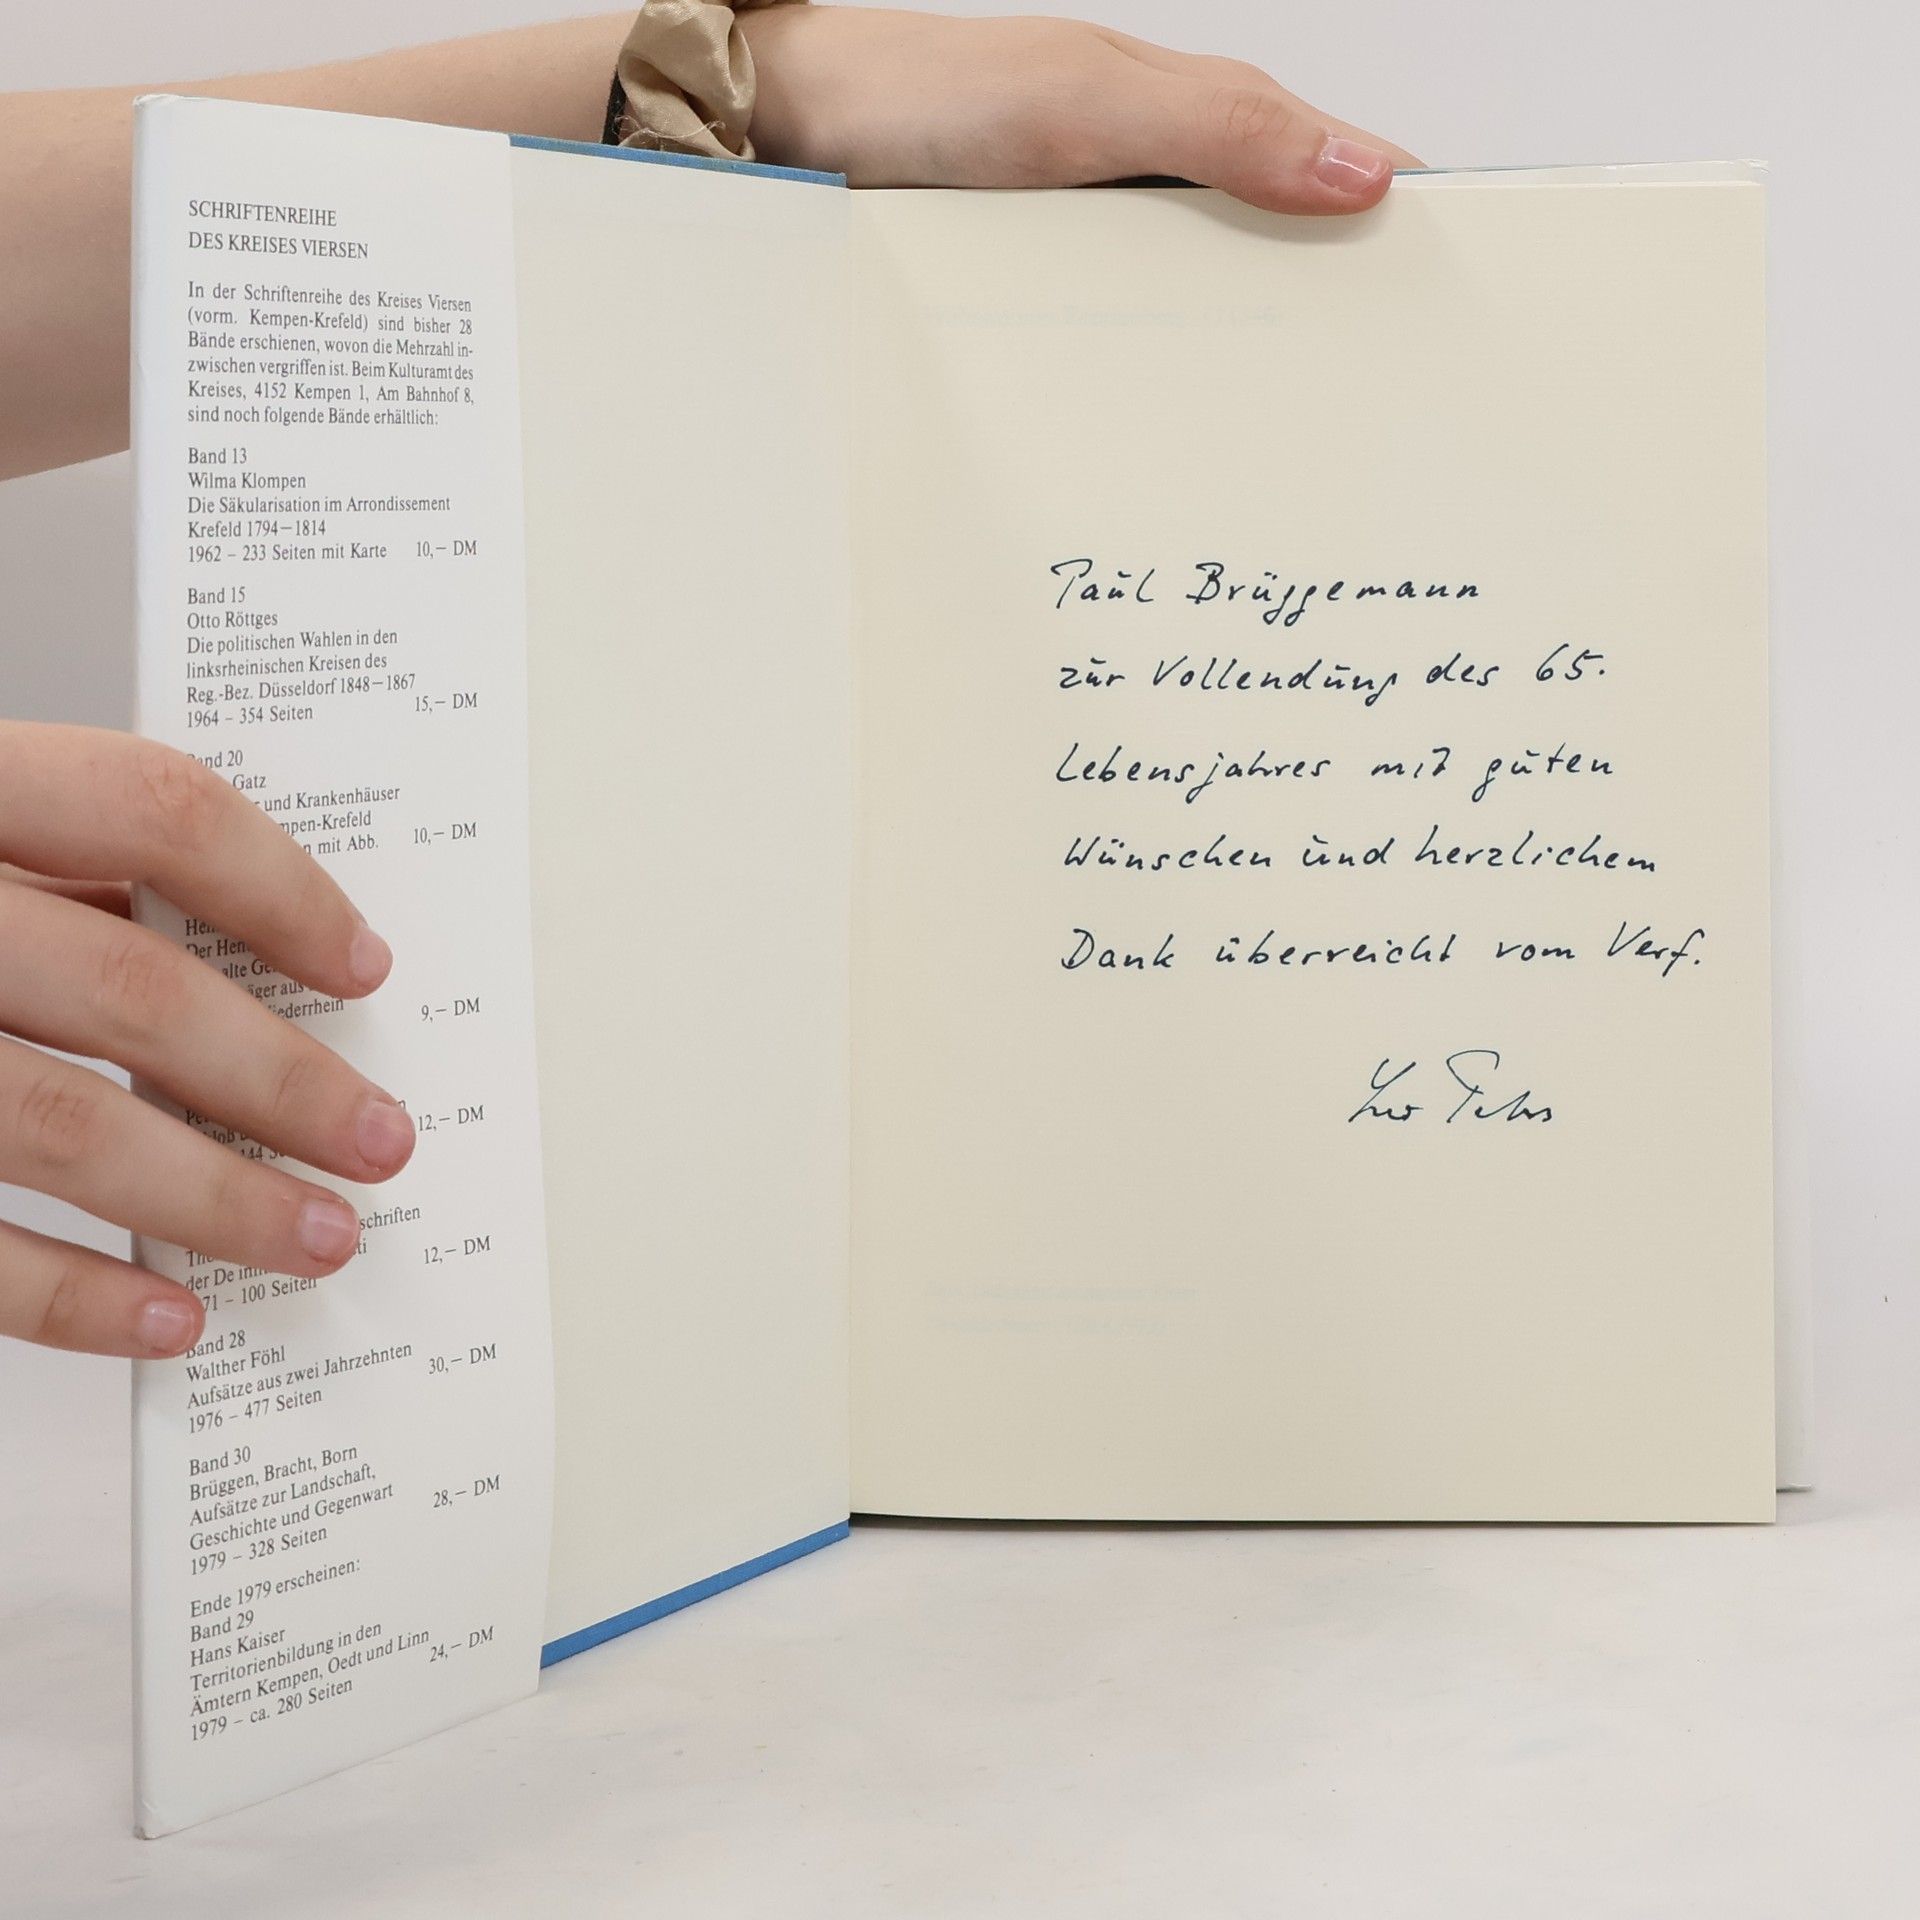 SCHRIFTENREIHE
DES KREISES VIERSEN
In der Schriftenreihe des Kreises Viersen
(vorm. Kempen-Krefeld) sind bisher 28
Bände erschienen, wovon die Mehrzahl in-
zwischen vergriffen ist. Beim Kulturamt des
Kreises, 4152 Kempen 1, Am Bahnhof 8,
sind noch folgende Bände erhältlich:
Band 13
Wilma Klompen
Die Säkularisation im Arrondissement
Krefeld 1794–1814
1962 – 233 Seiten mit Karte 10,– DM
Band 15
Otto Röttges
Die politischen Wahlen in den
linksrheinischen Kreisen des
Reg.-Bez. Düsseldorf 1848–1867
1964 – 354 Seiten 15,– DM
Band 20
Gatz
und Krankenhäuser
mpen-Krefeld
mit Abb. 10,– DM
Der
alte
aus
iederrhein 9,– DM
12,– DM
schriften
der De
71 – 100 Seiten 12,– DM
Band 28
Walther Föhl
Aufsätze aus zwei Jahrzehnten
1976 – 477 Seiten 30,– DM
Band 30
Brüggen, Bracht, Born
Aufsätze zur Landschaft,
Geschichte und Gegenwart
1979 – 328 Seiten 28,– DM
Ende 1979 erscheinen:
Band 29
Hans Kaiser
Territorienbildung in den
Ämtern Kempen, Oedt und Linn
1979 – ca. 280 Seiten 24,– DM
Paul Brüggemann
zur Vollendung des 65.
Lebensjahres mit guten
Wünschen und herzlichem
Dank überreicht vom Verf.